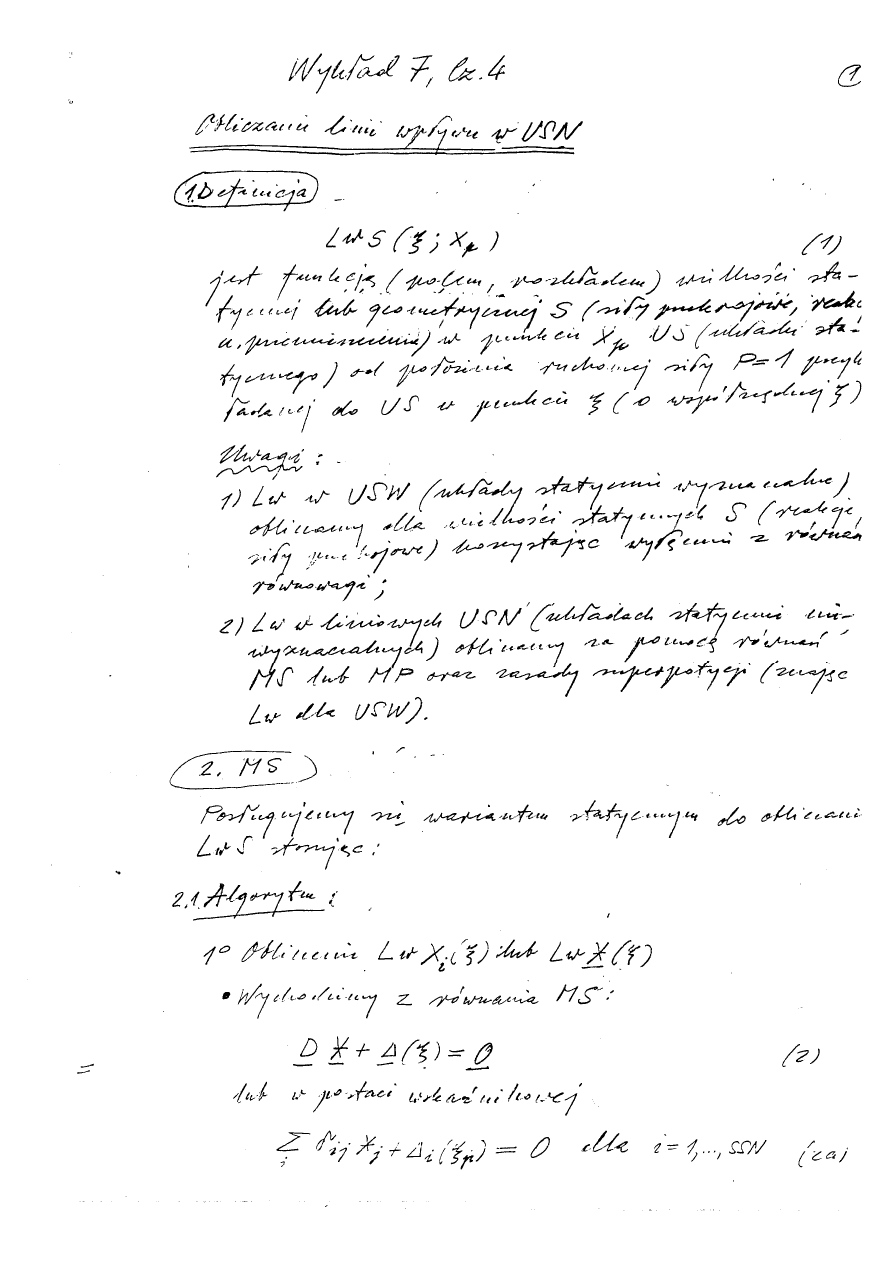 Wykład 7, Cz. 4
1
Obliczanie linii wpływu w USN
1. Definicja
LwS (ξ; Xp) (1)
jest funkcją (polem, rozkładem) wielkości sta-
tycznej lub geometrycznej S (siły przekrojowe, reakc
przemieszczenia) w punkcie Xp US (układu sta-
tycznego) od położenia ruchomej siły P=1 przyk
ładanej do US w punkcie ξ (o współrzędnej ξ)
Uwagi:
1) Lw w USW (układy statycznie wyznaczalne)
obliczamy dla wielkości statycznych S (reakcje,
siły przekrojowe) korzystając wyłącznie z równań
równowagi;
2) Lw w liniowych USN (układach statycznie nie-
wyznaczalnych) obliczamy za pomocą równań
MS lub MP oraz zasady superpozycji (znając
Lw dla USW).
2. MS
Posługujemy się wariantem statycznym do obliczani
LwS stosując:
2.1. Algorytm:
1° Obliczenie Lw Xi(ξ) lub Lw X(ξ)
• Wychodzimy z równania MS:
D X + Δ(ξ) = 0 (2)
lub w postaci wskaźnikowej
Σj δij Xj + Δi(ξp) = 0 dla i=1,...,SSN (2a)